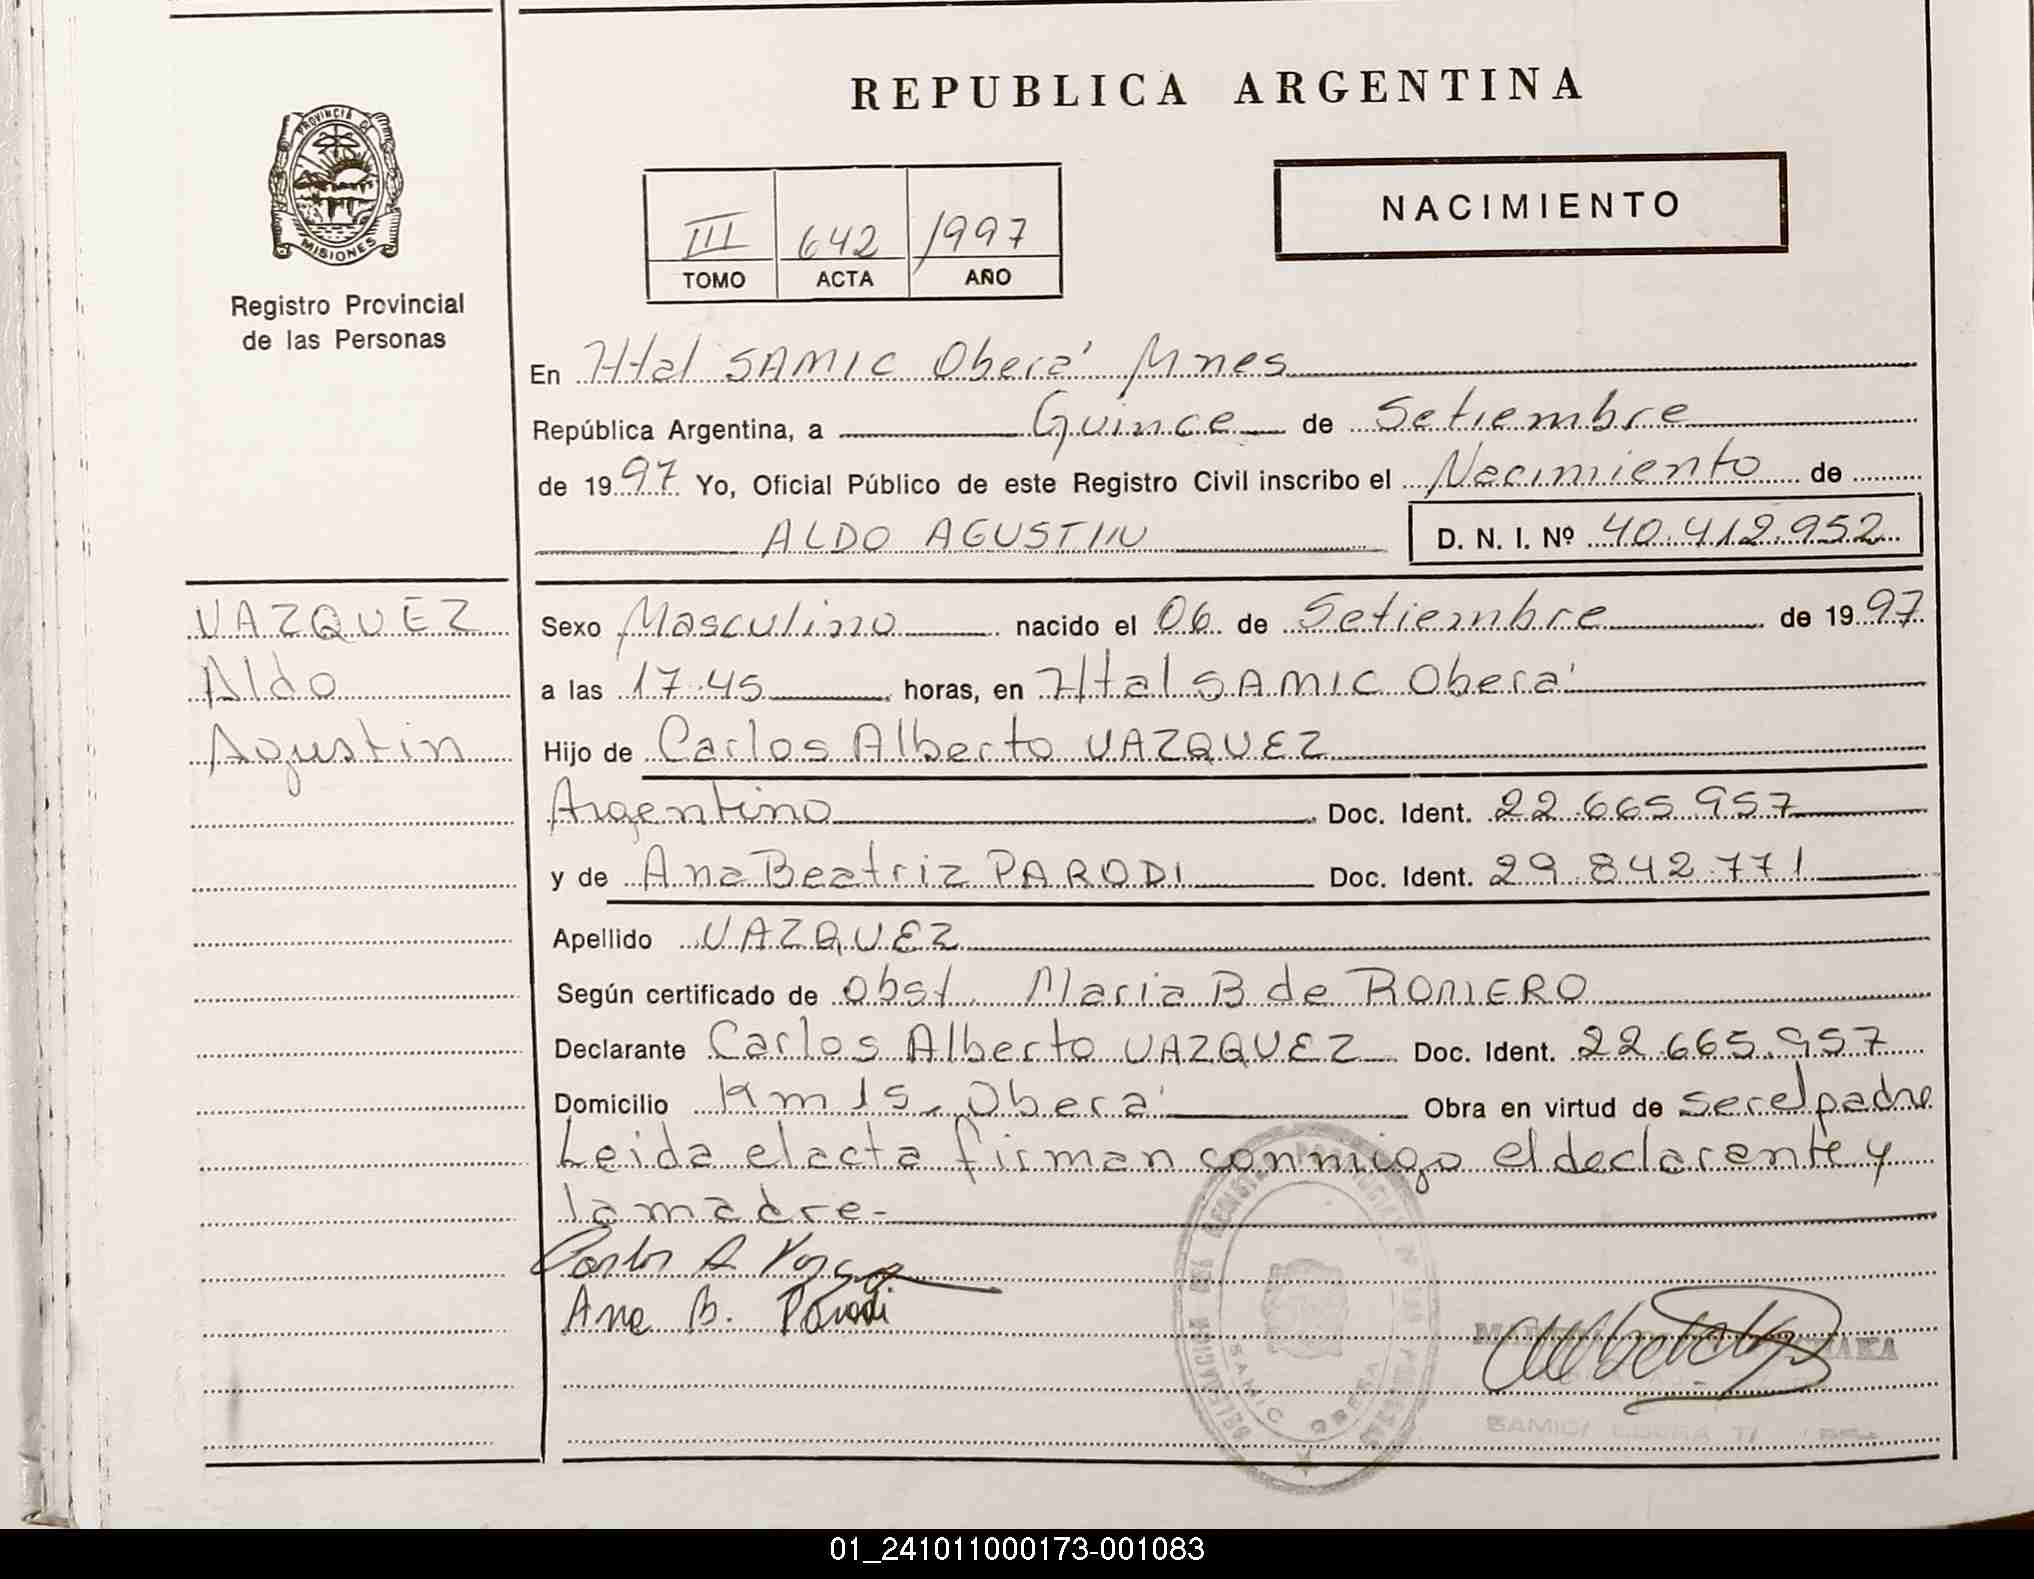 REPUBLICA ARGENTINA
PROVINCIA DE
MISIONES
Registro Provincial
de las Personas
III 642 1997
TOMO ACTA AÑO
NACIMIENTO
En Htal SAMIC Oberá Mnes
República Argentina, a Quince de Setiembre
de 1997 Yo, Oficial Público de este Registro Civil inscribo el Nacimiento de
ALDO AGUSTIN D. N. I. Nº 40.412.952
VAZQUEZ
Aldo
Agustin
Sexo Masculino nacido el 06 de Setiembre de 1997
a las 17.45 horas, en Htal SAMIC Oberá
Hijo de Carlos Alberto VAZQUEZ
Argentino Doc. Ident. 22.665.957
y de Ana Beatriz PARODI Doc. Ident. 29.842.771
Apellido VAZQUEZ
Según certificado de obst. Maria B de ROMERO
Declarante Carlos Alberto VAZQUEZ Doc. Ident. 22.665.957
Domicilio Km 15 - Oberá Obra en virtud de ser el padre
Leida el acta firman conmigo el declarante y
la madre -
Carlos A
Ana B. Parodi
SAMIC OBERA
01_241011000173-001083